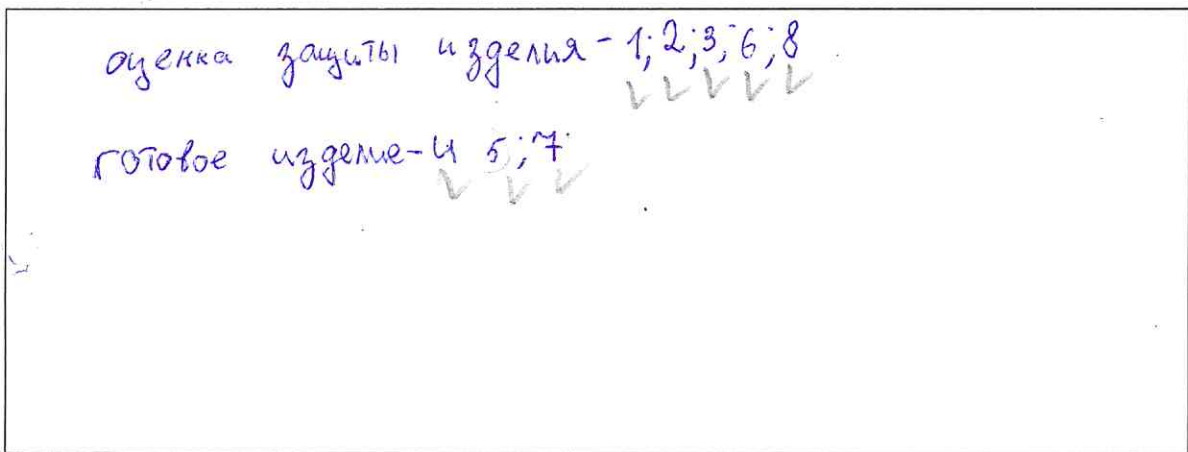 оценка защиты изделия - 1; 2; 3; 6; 8
готовое изделие - 4 5; 7;